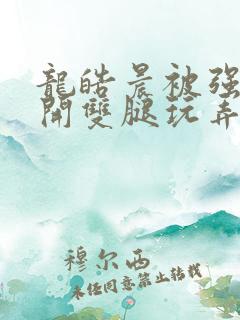 龍皓晨被强
開雙腿玩弄
穆尔西
未经同意禁止转载